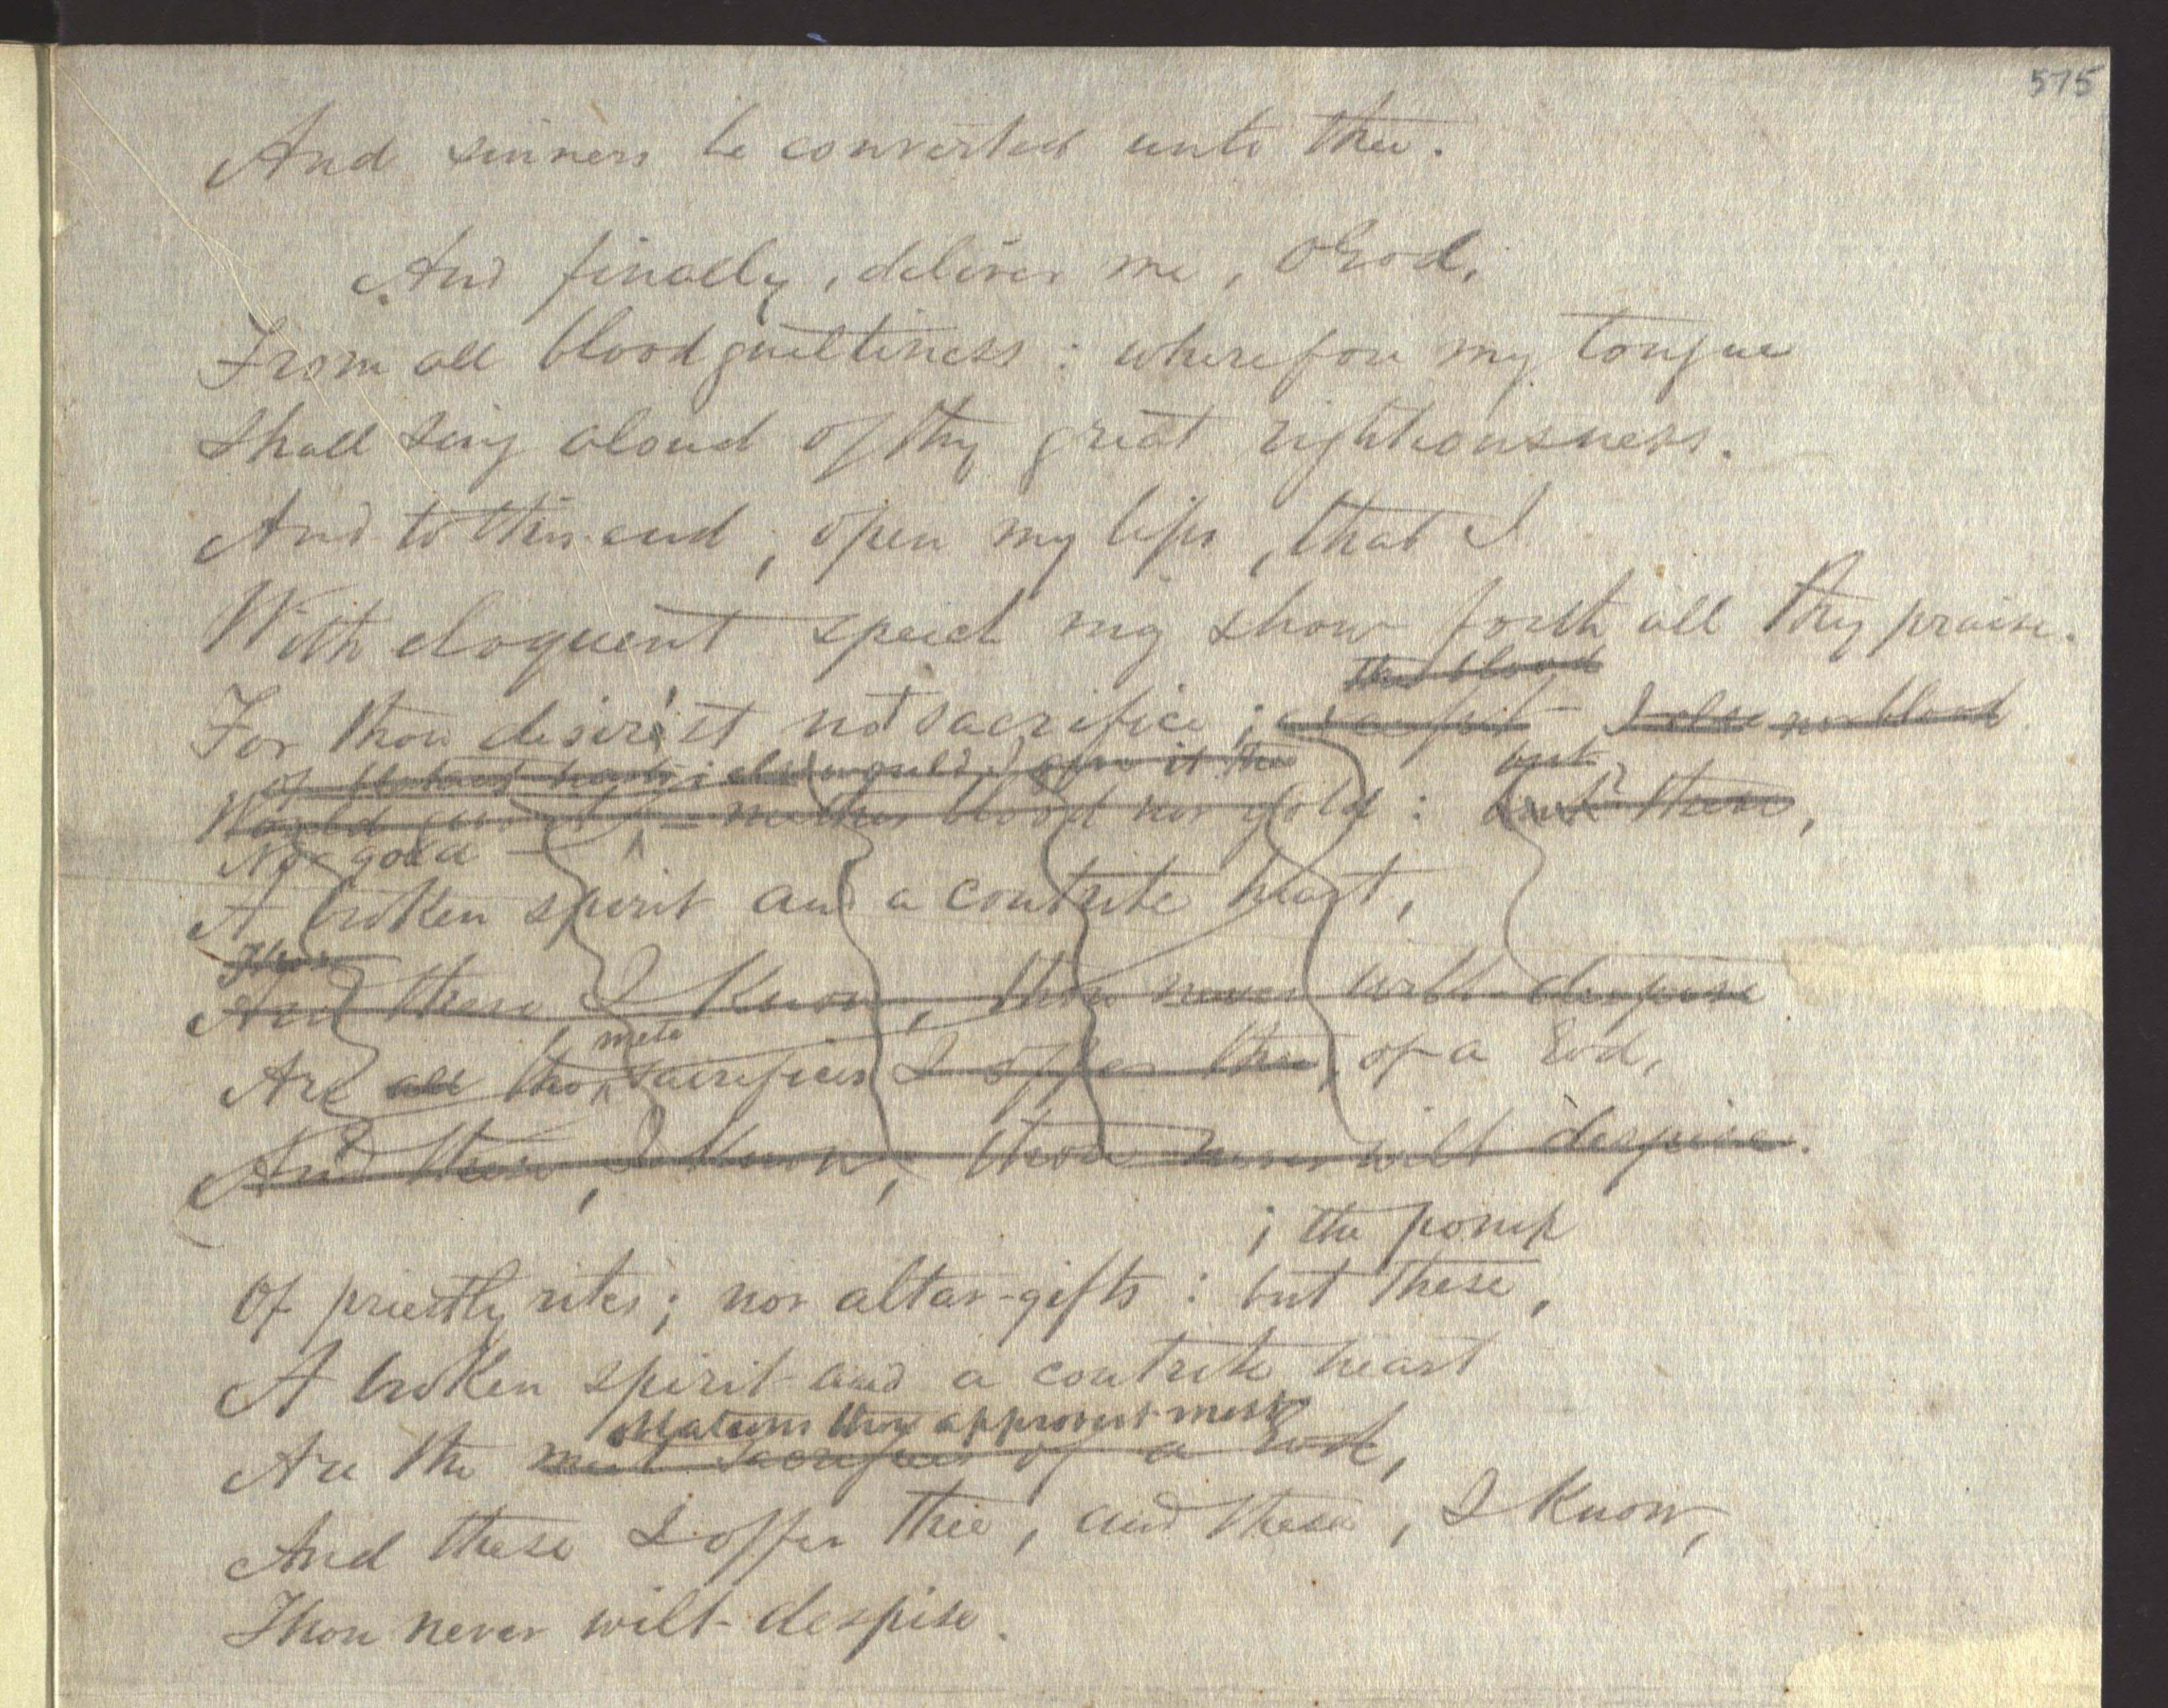 575
And sinners be converted unto thee.
And finally, deliver me, O God,
From all bloodguiltiness: wherefore my tongue
Shall sing aloud of thy great righteousness.
And to this end, open my lips, that I
With eloquent speech may show forth all thy praise.
the blood
For thou desir'st not sacrifice; I else no blood
of else would I give it thee
but
Would neither blood nor gold: but these,
Nor gold
A broken spirit and a contrite heart,
Thou
And these, I know, thou never wilt despise
mete
Are all the sacrifices I offer thee, of a God,
And these, I know, thou never wilt despise.
; the pomp
Of priestly rites; nor altar-gifts: but these,
A broken spirit and a contrite heart
oblations thou approvest most
Are the meet sacrifices of a God,
And these I offer thee, and these, I know,
Thou never wilt despise.